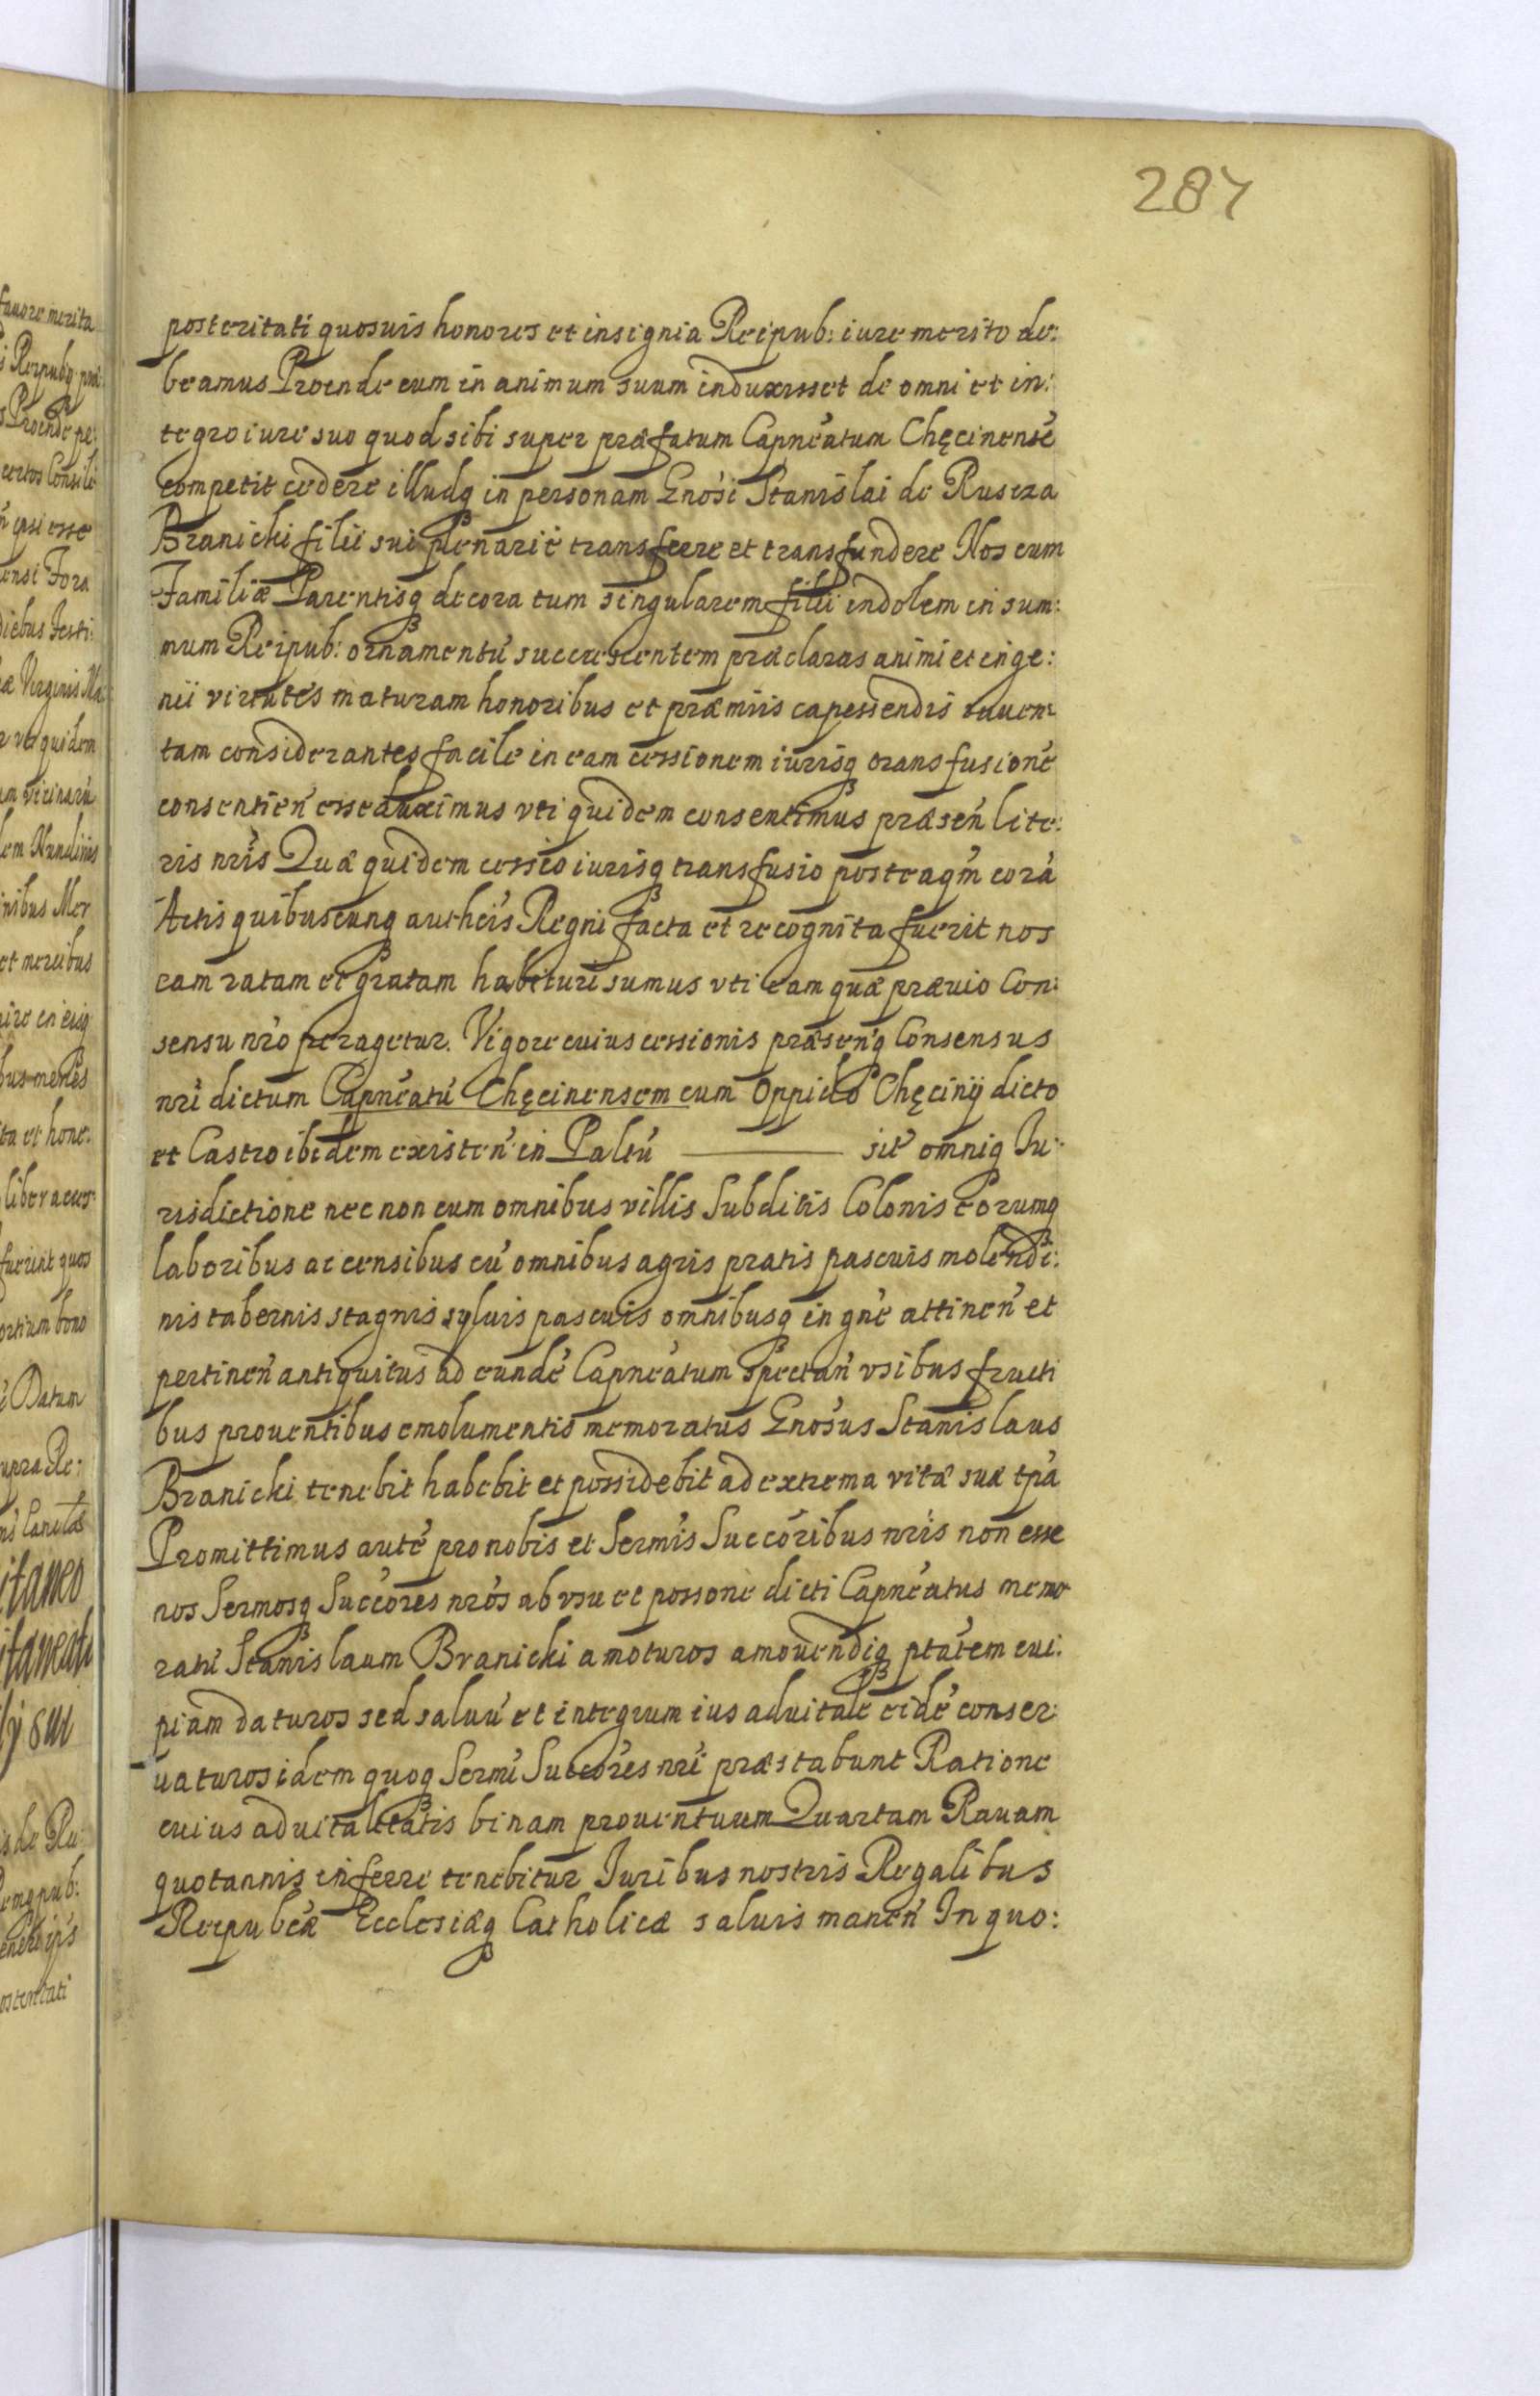 287
favore merita
posteritati quosuis honores et insignia Reipub: iure merito de:
beamus Proinde cum in animum suum induxisset de omni et in:
tegro iure suo quod sibi super præfatum Capneatum Chęcinensē
competit cedere illudq in personam Gnosi Stanislai de Ruscza
Branicki filii sui plenarie transfeere et transfundere Nos cum
Familiæ Parentisq decora tum singularem filii indolem in sum:
mum Reipub: ornamentū succrescentem præclaras animi et inge:
nii virtutes maturam honoribus et præmiis capessendis iuuen:
tam considerantes facile in eam cessionem iurisq transfusionē
consentien̄ esse duximus vti quidem consentimus præsen̄ lite:
ris nr̄is Quæ quidem cessio iurisq transfusio posteaqm̄ corā
Actis quibuscunq autheīs Regni facta et recognita fuerit nos
eam ratam et gratam habituri sumus vti eam quæ præuio Con:
sensu nr̄o peragetur. Vigore cuius cessionis præsenq̄ Consensus
nr̄i dictum Capneatū Chęcinensem cum Oppido Chęcinÿ dicto
et Castro ibidem existen̄ in Paltū ——— sit̄ omniq Iu:
risdictione nec non cum omnibus villis Subditis Colonis eorumq
laboribus ac censibus cū omnibus agris pratis pascuis molendi:
nis tabernis stagnis syluis pascuis omnibusq in gnē attinen̄ et
pertinen̄ antiquitus ad eundē Capneatum spectan̄ vsibus fructi
bus prouentibus emolumentis memoratus Gnosus Stanislaus
Branicki tenebit habebit et possidebit ad extrema vitæ suæ tpā
Promittimus autē pro nobis et Sermīs Succoribus nr̄is non esse
nos Sermosq Succores nr̄os ab vsu et possone dicti Capneatus memo
ratū Stanislaum Branicki amoturos amouendiq ptātem cui:
piam daturos sed saluū et integrum ius aduitale eidē conser:
uaturos idem quoq Sermī Succores nr̄i præstabunt Ratione
cuius aduitalitatis binam prouentuum Quartam Rauam
quotannis inferre tenebitur Iuribus nostris Regalibus
Reipubcæ Ecclesiæq Catholicæ saluis manen̄ In quo: